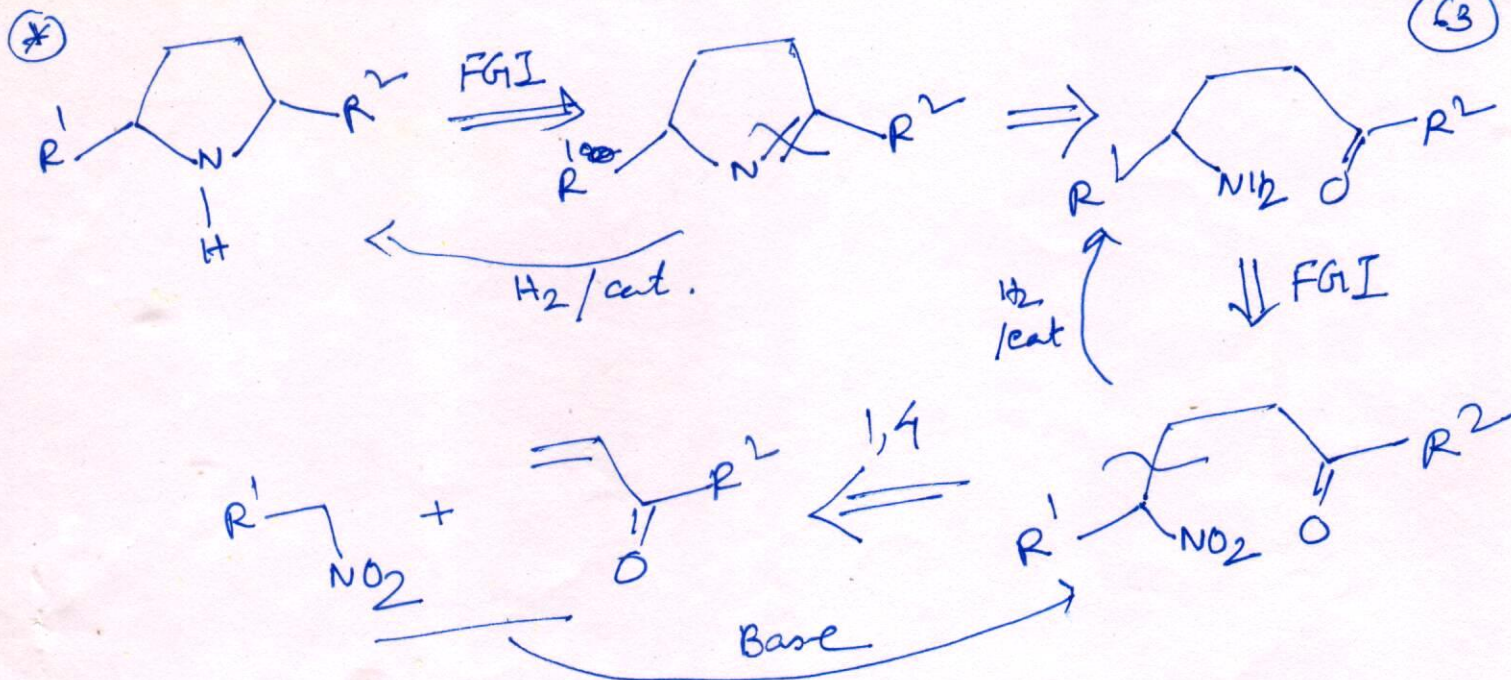 * 63
R¹ N H R² FGI R¹ N R² R¹ NH₂ O R²
H₂/cat.
H₂ /cat FGI
R¹ NO₂ + O R² 1,4 R¹ NO₂ O R²
Base